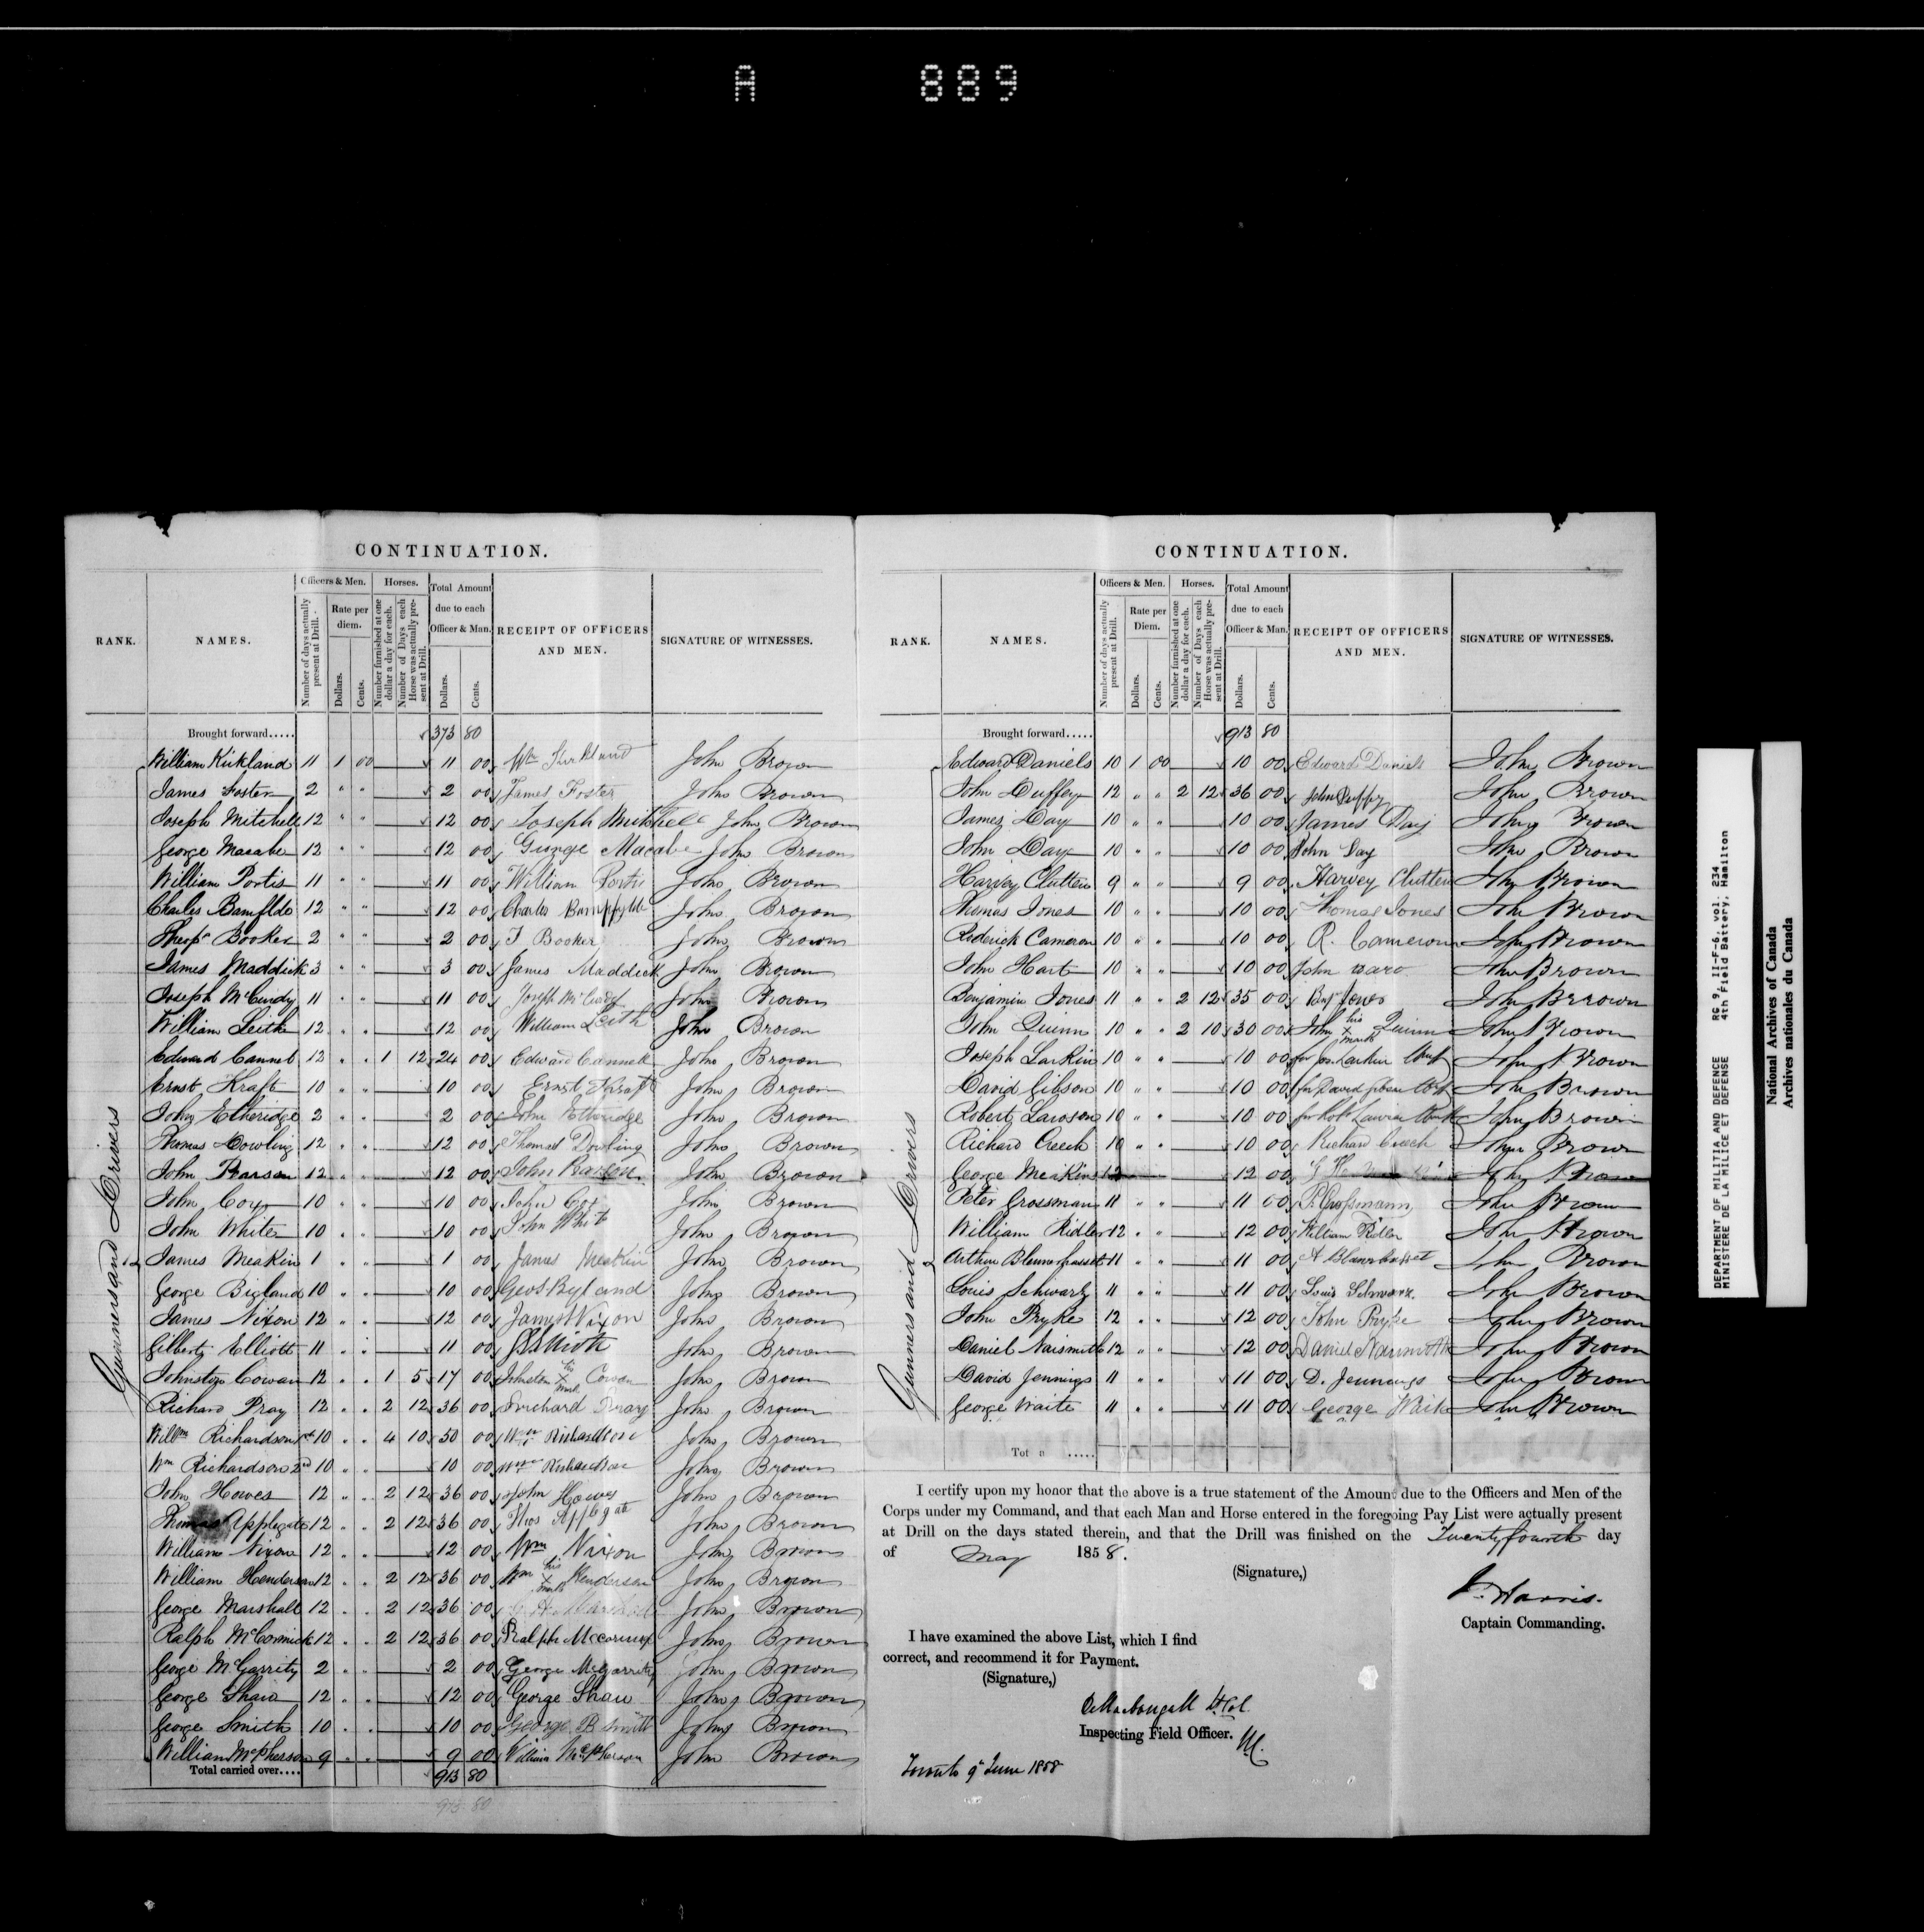 A 889
CONTINUATION.
RANK. NAMES. Officers & Men. Horses. Total Amount due to each Officer & Man. RECEIPT OF OFFICERS AND MEN. SIGNATURE OF WITNESSES.
Number of days actually present at Drill. Rate per diem. Dollars. Cents. Number furnished at one dollar a day for each. Number of Days each Horse was actually present at Drill. Dollars. Cents.
Brought forward..... 373 80
Gunners and Drivers
William Kirkland 11 1 00 11 00 Wm Kirkland John Brown
James Foster 2 " " 2 00 James Foster John Brown
Joseph Mitchell 12 " " 12 00 Joseph Mitchell John Brown
George Macabe 12 " " 12 00 George Macabe John Brown
William Portis 11 " " 11 00 William Portis John Brown
Charles Bamflde 12 " " 12 00 Charles Bampfylde John Brown
Theops Booker 2 " " 2 00 T Booker John Brown
James Maddick 3 " " 3 00 James Maddick John Brown
Joseph McCurdy 11 " " 11 00 Joseph McCurdy John Brown
William Leith 12 " " 12 00 William Leith John Brown
Edward Cannel 12 " " 1 12 24 00 Edward Cannell John Brown
Ernst Kraft 10 " " 10 00 Ernst Kraft John Brown
John Etheridge 2 " " 2 00 John Etheridge John Brown
Thomas Dowling 12 " " 12 00 Thomas Dowling John Brown
John 12 " " 12 00 John John Brown
John Cox 10 " " 10 00 John Cox John Brown
John White 10 " " 10 00 John White John Brown
James Meakin 1 " " 1 00 James Meakin John Brown
George Bigland 10 " " 10 00 John Brown
James Nixon 12 " " 12 00 James Nixon John Brown
Gilbert Elliott 11 " " 11 00 John Brown
Johnston Cowan 12 " " 1 5 17 00 Johnston his X mark Cowan John Brown
Richard Pray 12 " " 2 12 36 00 Richard Pray John Brown
Willm Richardson 1st 10 " " 4 10 50 00 Wm Richardson John Brown
Wm Richardson 2nd 10 " " 10 00 Wm Richardson John Brown
John Howes 12 " " 2 12 36 00 John Howes John Brown
Thomas Applegate 12 " " 2 12 36 00 Thos Applegate John Brown
William Nixon 12 " " 12 00 Wm Nixon John Brown
William Henderson 12 " " 2 12 36 00 Wm his X mark Henderson John Brown
George Marshall 12 " " 2 12 36 00 Marshall John Brown
Ralph McCormick 12 " " 2 12 36 00 Ralph Mccormick John Brown
George McGarrity 2 " " 2 00 George McGarrity John Brown
George Shaw 12 " " 12 00 George Shaw John Brown
George Smith 10 " " 10 00 George B Smith John Brown
William McPherson 9 " " 9 00 William McPherson John Brown
Total carried over.... 913 80
913 80
CONTINUATION.
RANK. NAMES. Officers & Men. Horses. Total Amount due to each Officer & Man. RECEIPT OF OFFICERS AND MEN. SIGNATURE OF WITNESSES.
Number of days actually present at Drill. Rate per Diem. Dollars. Cents. Number furnished at one dollar a day for each. Number of Days each Horse was actually present at Drill. Dollars. Cents.
Brought forward..... 913 80
Gunners and Drivers
Edward Daniels 10 1 00 10 00 Edward Daniels John Brown
John Duffey 12 " " 2 12 36 00 John Duffy John Brown
James Day 10 " " 10 00 James Day John Brown
John Day 10 " " 10 00 John Day John Brown
Harvey Clutten 9 " " 9 00 Harvey Clutten John Brown
Thomas Jones 10 " " 10 00 Thomas Jones John Brown
Roderick Cameron 10 " " 10 00 R. Cameron John Brown
John Hart 10 " " 10 00 John John Brown
Benjamin Jones 11 " " 2 12 35 00 Benj Jones John Brown
John Quinn 10 " " 2 10 30 00 John his X mark Quinn John Brown
Joseph Larkin 10 " " 10 00 for Jos Larkin John Brown
David Gibson 10 " " 10 00 for David Gibson John Brown
Robert Lawson 10 " " 10 00 for Robt Lawson John Brown
Richard Creech 10 " " 10 00 Richard Creech John Brown
George Meakins 12 12 00 John Brown
Peter Grossman 11 " " 11 00 P. Grossmann John Brown
William Ridler 12 " " 12 00 William Ridler John Brown
Arthur Blennerhassett 11 " " 11 00 A Blennerhasset John Brown
Louis Schwartz 11 " " 11 00 Louis Schwarz. John Brown
John Pryke 12 " " 12 00 John Pryke John Brown
Daniel Naismith 12 " " 12 00 Daniel Naismith John Brown
David Jennings 11 " " 11 00 D. Jennings John Brown
George Waite 11 " " 11 00 George Waite John Brown
Tot .....
I certify upon my honor that the above is a true statement of the Amount due to the Officers and Men of the
Corps under my Command, and that each Man and Horse entered in the foregoing Pay List were actually present
at Drill on the days stated therein, and that the Drill was finished on the Twenty fourth day
of May 1858.
(Signature,)
Harris.
Captain Commanding.
I have examined the above List, which I find
correct, and recommend it for Payment.
(Signature,)
MacDougall Lt Col
Inspecting Field Officer.
Toronto 9 June 1858
DEPARTMENT OF MILITIA AND DEFENCE RG 9, II-F-6, vol. 234
MINISTERE DE LA MILICE ET DEFENSE 4th Field Battery, Hamilton
National Archives of Canada
Archives nationales du Canada